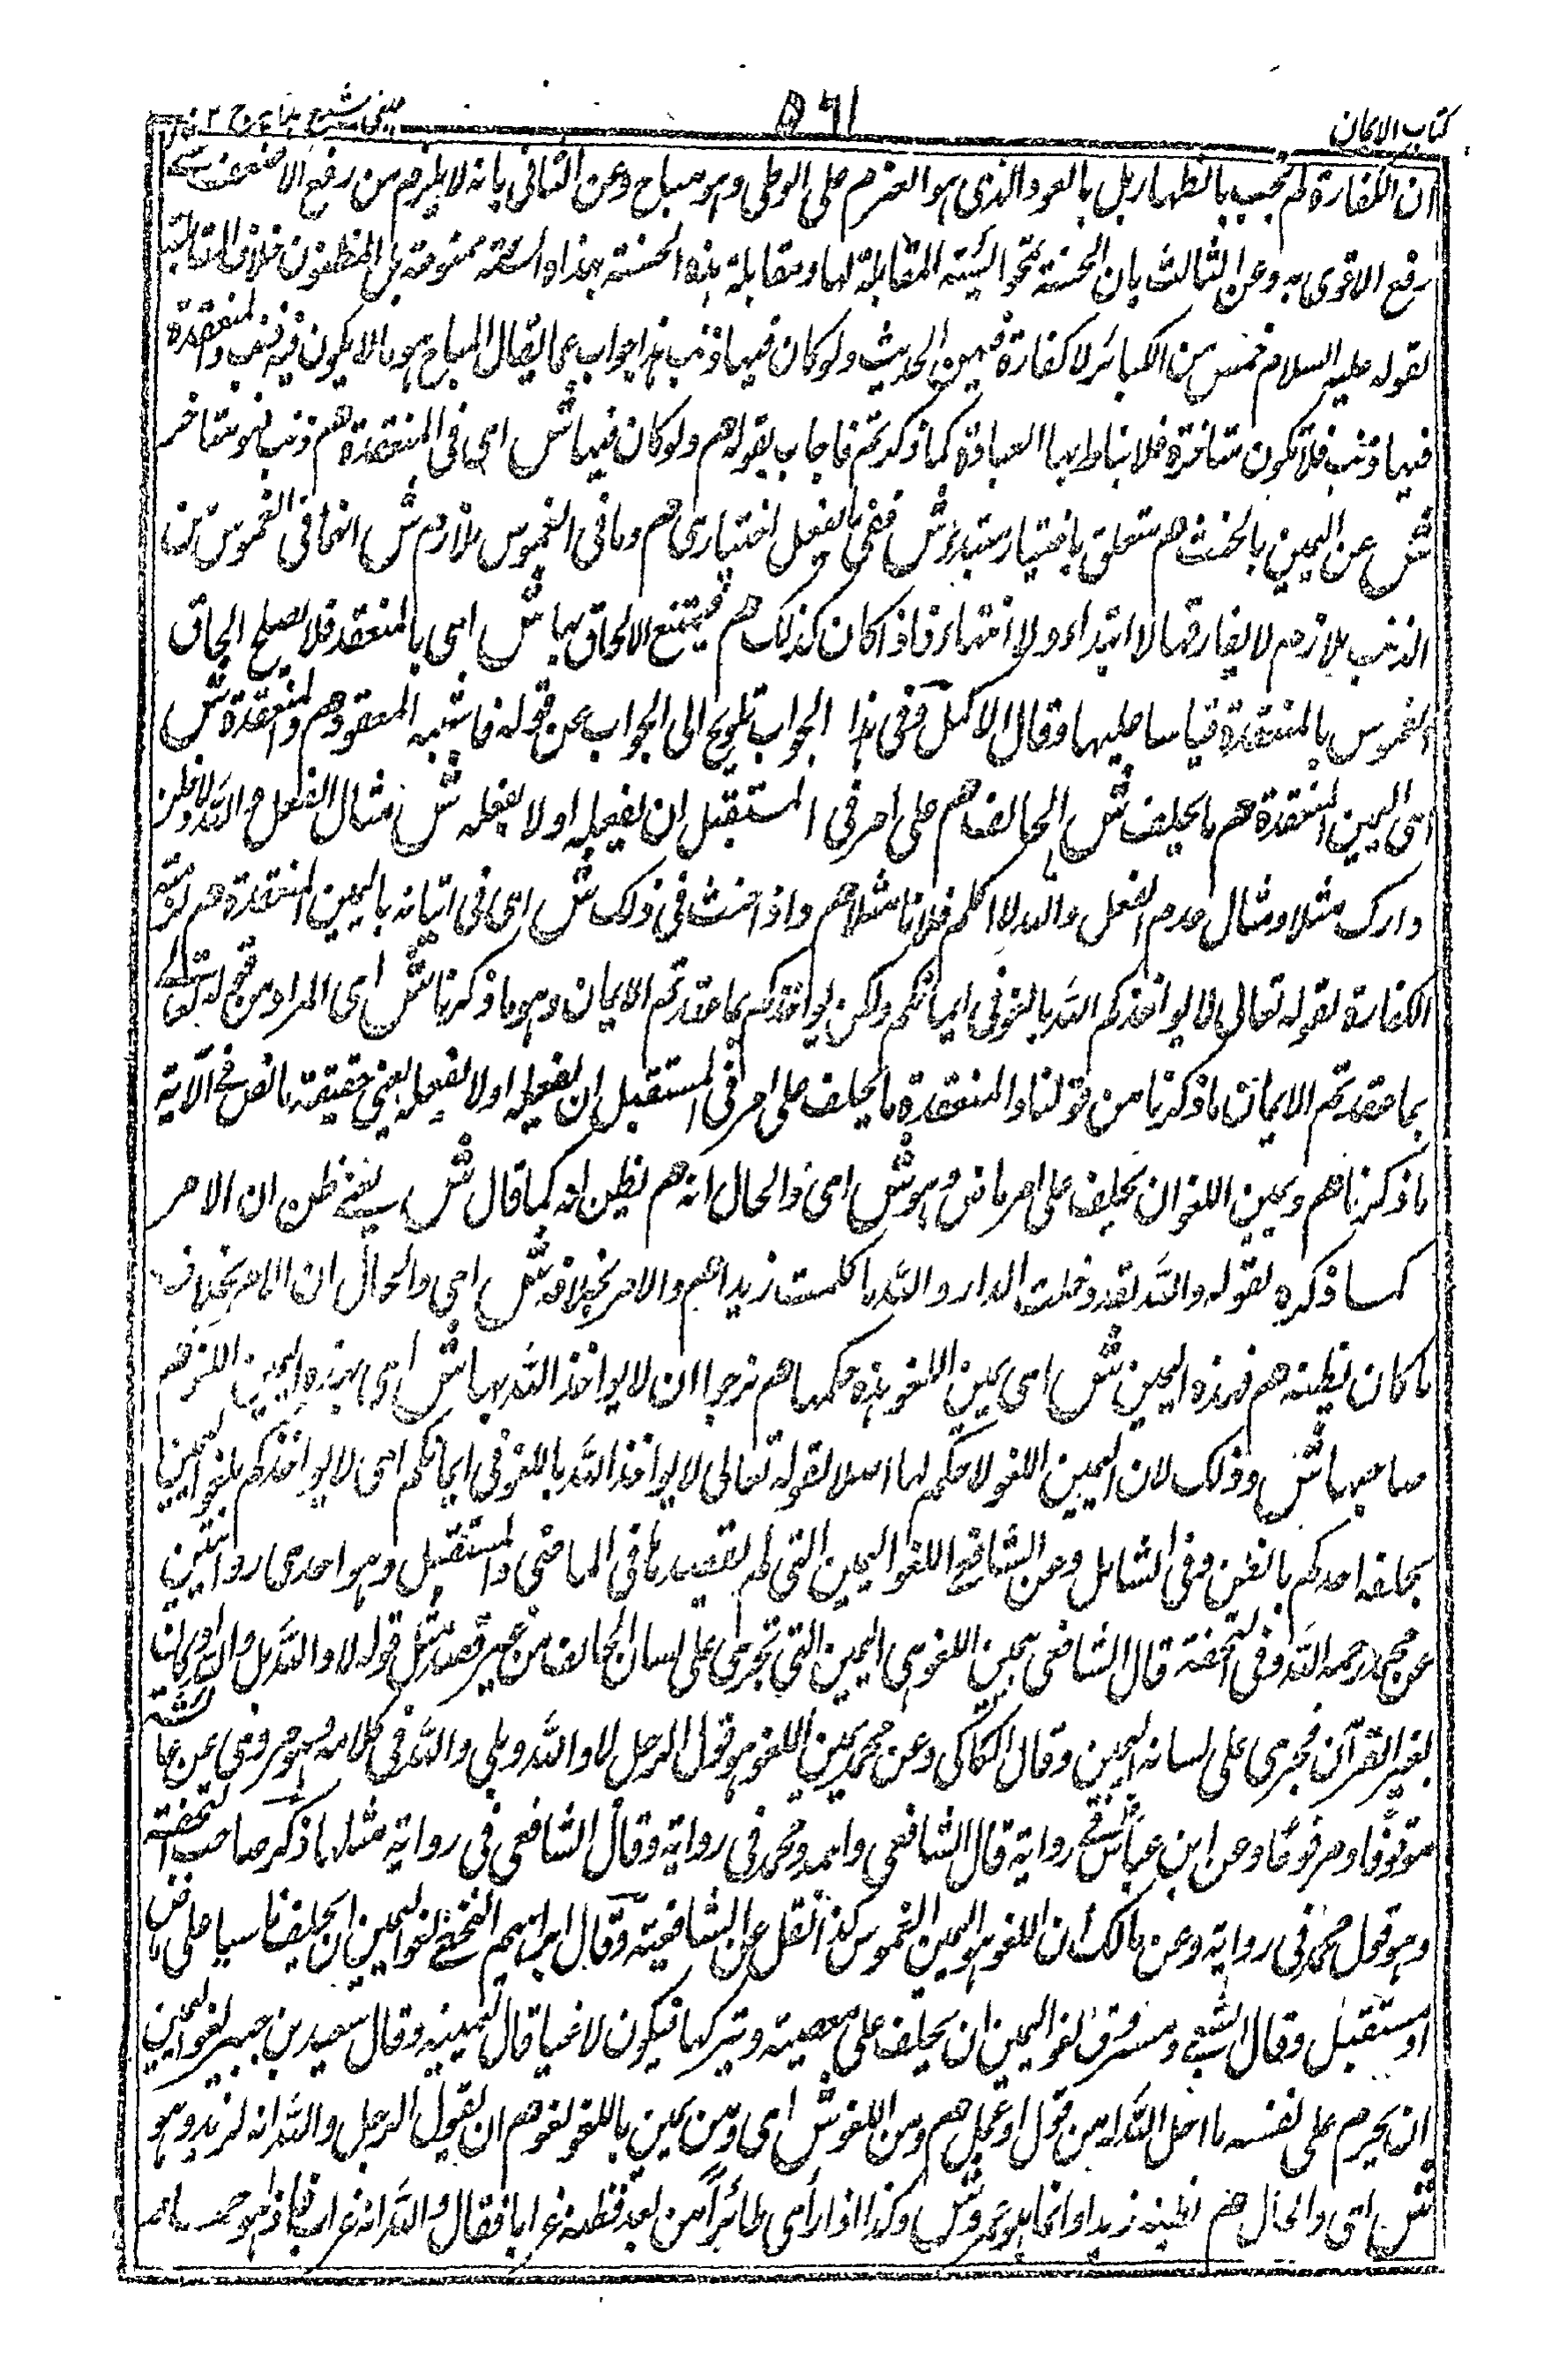 كتاب الايمان
٥٦١
عينى شرح هداية ج ٢
ان الكفارة لم تجب بالظهار بل بالعود الذى هو العزم على الوطى وهو مباح وعن الثانى بانه لا يلزم من رفع الاضعف شئ
رفع الاقوى به وعن الثالث بان الحسنة تمحو السيئة المقابلة لها ومقابلة هذه الحسنة بهذا والسيئة ممنوعة بل المظنون خلاف المقابلة
لقوله عليه السلام خمس من الكبائر لا كفارة فيهن الحديث ولو كان فيها ذنب هذا جواب عما يقال المباح هو ما لا يكون فيه ذنب والمنعقدة
فيها ذنب فلا تكون متاخرة فلا يناط بها العبادة كما ذكرتم فاجاب بقوله هم ولو كان فيها ش اى فى المنعقدة هم ذنب فهو متاخر
ش عن اليمين بالحنث هم متعلق باختيار مبتدأ ش ففى بالفعل اختيارى هم وما فى الغموس ملازم ش انما فى الغموس من
الذنب ملازم لا يفارقها لا ابتداء ولا انتهاء فاذا كان كذلك هم فيمتنع الالحاق بها ش اى بالمنعقد فلا يصلح الحاق
الغموس بالمنعقدة قياسا عليها وقال الاكمل ففى هذا الجواب تلويح الى الجواب عن قوله فاشبه المعقود هم والمنعقدة ش
اى اليمين المنعقدة هم ما يحلف ش الحالف هم على امر فى المستقبل ان يفعله او لا يفعله ش مثال الفعل والله لادخلن
دارك مثلا ومثال عدم الفعل والله لا اكلم فلانا مثلا هم واذا حنث فى ذلك ش اى فى اتيانه باليمين المنعقدة هم لزمته
الكفارة لقوله تعالى لا يواخذكم الله باللغو فى ايمانكم ولكن يواخذكم بما عقدتم الايمان وهو ما ذكرنا ش اى المراد من قوله تعالى
بما عقدتم الايمان ما ذكرنا من قولنا والمنعقدة ما يحلف على امر فى المستقبل ان يفعله او لا يفعله يعنى حقيقة بالنص فى الآية
ما ذكرنا هم ويمين اللغو ان يحلف على امر ماض وهو ش اى والحال انه هم يظن انه كما قال ش يعنى ظن ان الامر
كما ذكره لقوله والله لقد دخلت الدار والله ما كلمت زيدا هم والامر بخلافه ش اى والحال ان الامر بخلاف
ما كان يظنه هم فهذه اليمين ش اى يمين اللغو هذه حكمها هم نرجو ان لا يواخذ الله بها ش اى بهذه اليمين اللغو هم
صاحبها ش وذلك لان اليمين اللغو لا حكم لها اصلا لقوله تعالى لا يواخذ الله باللغو فى ايمانكم اى لا يواخذكم بلغو اليمين
بحلفه احدكم بالظن وفى الشامل وعن الشافعى اللغو اليمين التى لم يقصدها فى الماضى والمستقبل وهو احدى روايتين
عن محمد رحمه الله وفى التحفة قال الشافعى يمين اللغو هى اليمين التى تجرى على لسان الحالف من غير قصد مثل قوله لا والله بل والله او كان
لغير القرآن فجرى على لسانه اليمين وقال الكاكى وعن محمد يمين اللغو هو قول الرجل لا والله وبلى والله فى كلامه وهو مروى عن عائشة
موقوفا ومرفوعا وعن ابن عباس فى رواية قال الشافعى واحمد ومحمد فى رواية وقال الشافعى فى رواية مثلها ذكر صاحب التحفة
وهو قول محمد فى رواية وعن مالك ان اللغو هو اليمين الغموس كذا نقل عن الشافعية وقال ابراهيم النخعى لغو اليمين ان يحلف ناسيا على ماض
او مستقبل وقال الشعبى ومسروق لغو اليمين ان يحلف على معصية ويتركها فيكون لاغيا قال بيمينه وقال سعيد بن جبير لغو اليمين
ان يحرم على نفسه ما احل الله له من قول او عمل هم ومن اللغو ش اى ومن يمين باللغو لغو هم ان يقول الرجل والله انه لزيد وهو
ش اى والحال هم يظنه زيدا وانما هو عمرو ش وكذا اذا رأى طائرا من بعد فظنه غرابا فقال والله انه غراب فاذا هو حمامة